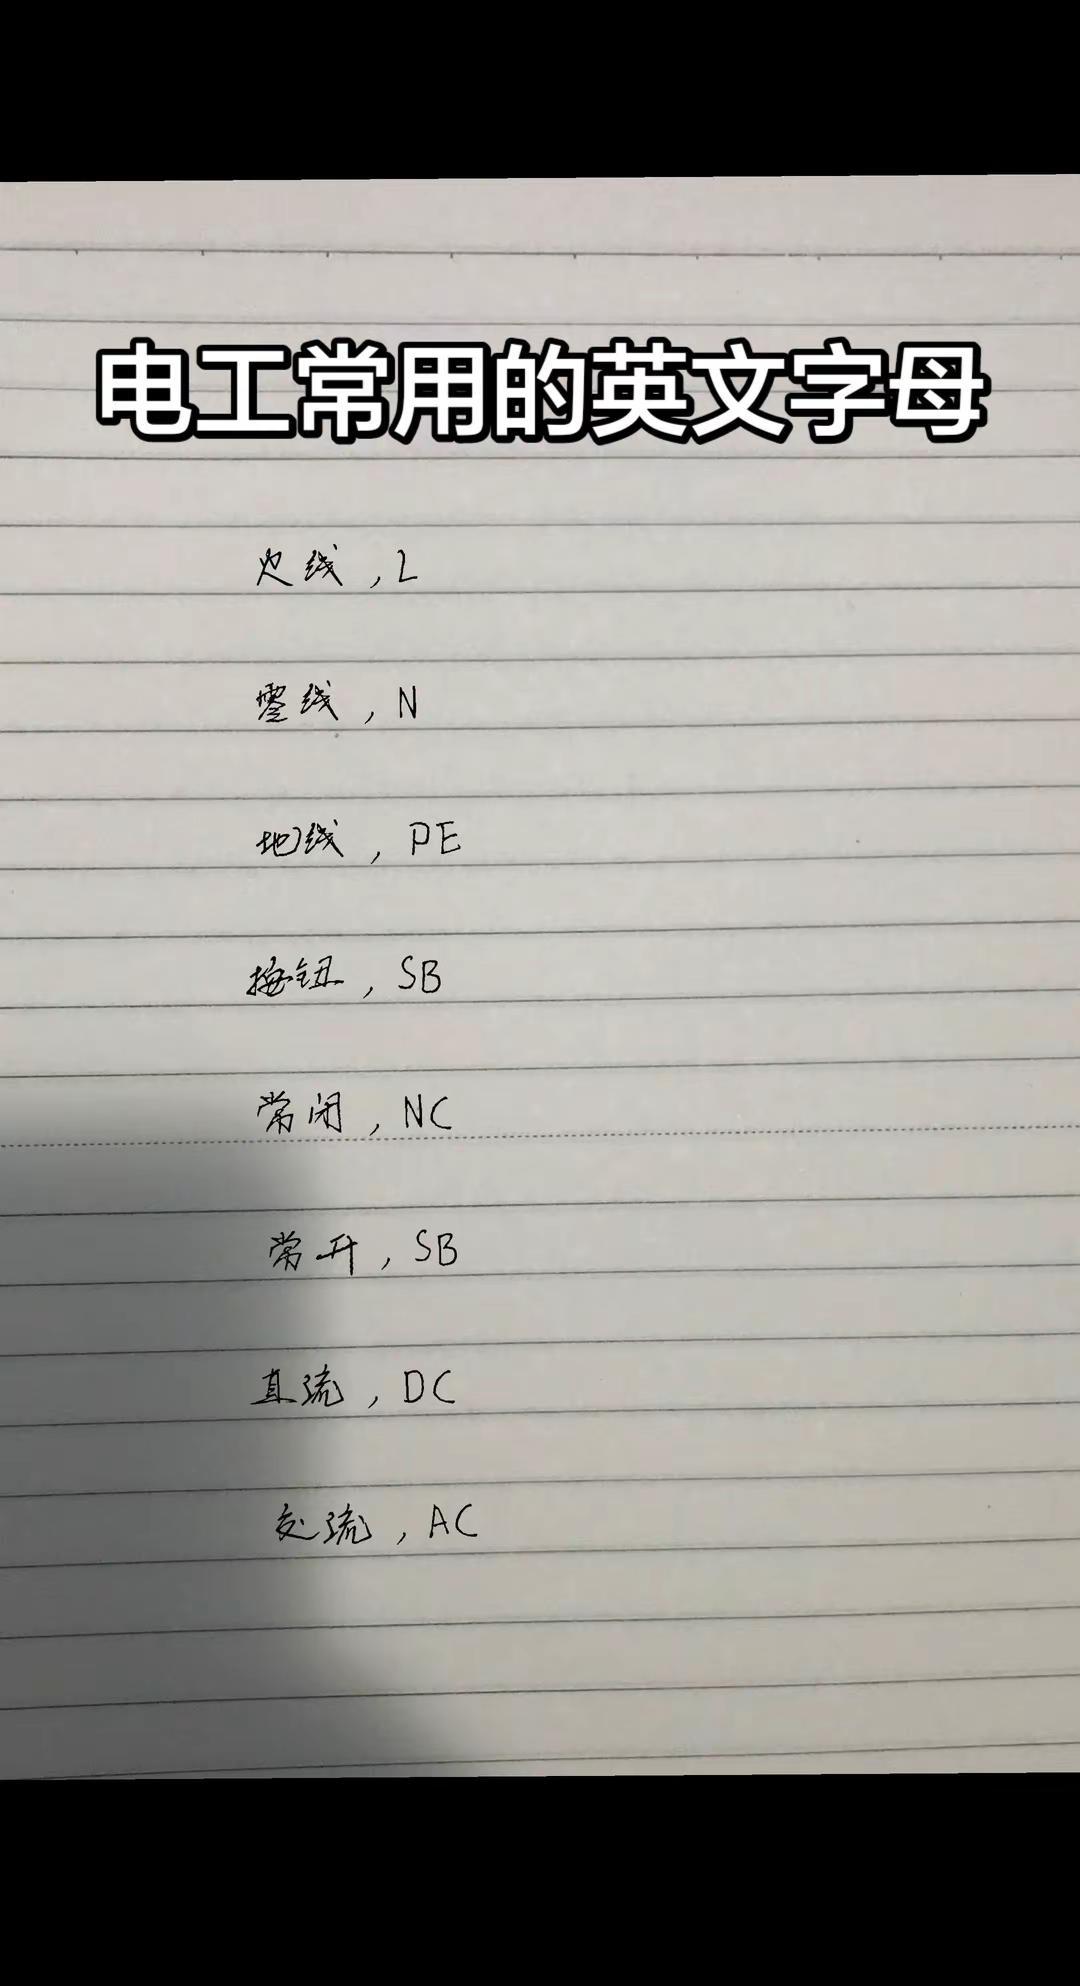 电工常用的英文字母
火线，L
零线，N
地线，PE
按钮，SB
常闭，NC
常开，SB
直流，DC
交流，AC